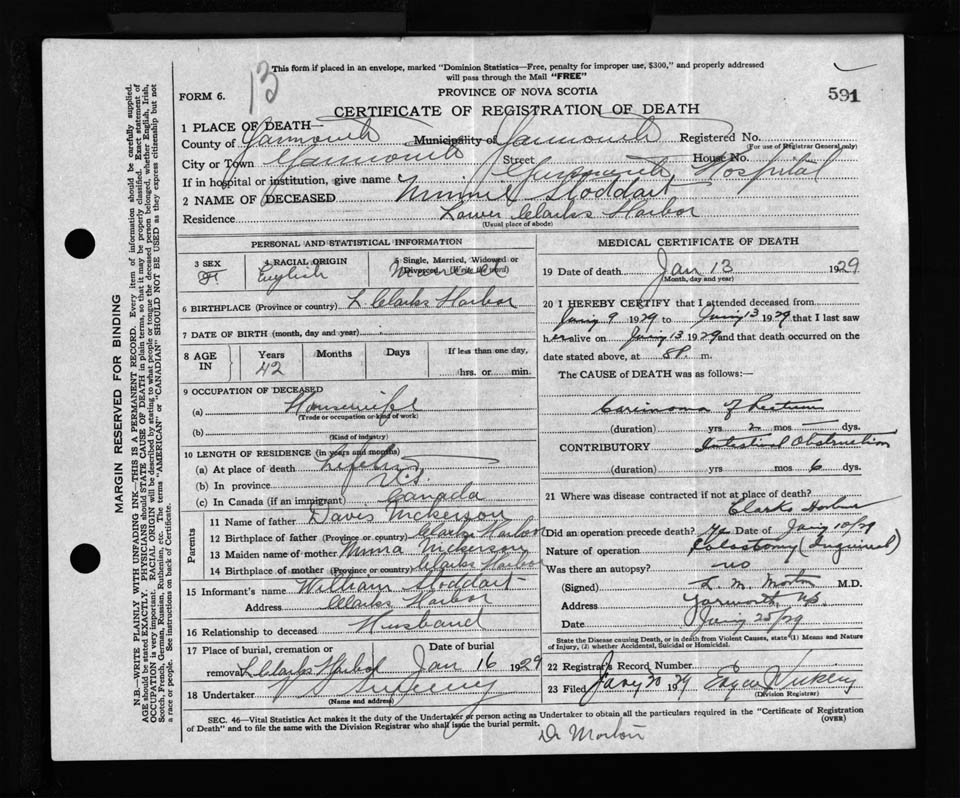 13
This form if placed in an envelope, marked "Dominion Statistics—Free, penalty for improper use, $300," and properly addressed
will pass through the Mail "FREE"
FORM 6.
PROVINCE OF NOVA SCOTIA
591
CERTIFICATE OF REGISTRATION OF DEATH
1 PLACE OF DEATH—
County of Yarmouth Municipality of Yarmouth Registered No.
(For use of Registrar General only)
City or Town Yarmouth Street House No.
If in hospital or institution, give name Yarmouth Hospital
2 NAME OF DECEASED Minnie Stoddart
Residence Lower Clarks Harbor
(Usual place of abode)
PERSONAL AND STATISTICAL INFORMATION
3 SEX F
4 RACIAL ORIGIN English
5 Single, Married, Widowed or Divorced. (Write the word)
6 BIRTHPLACE (Province or country) L. Clarks Harbor
7 DATE OF BIRTH (month, day and year)
8 AGE IN Years 42 Months Days If less than one day, hrs. or min.
9 OCCUPATION OF DECEASED
(a) Housewife
(Trade or occupation or kind of work)
(b)
(Kind of industry)
10 LENGTH OF RESIDENCE (in years and months)
(a) At place of death
(b) In province N.S.
(c) In Canada (if an immigrant) Canada
Parents
11 Name of father Davis Nickerson
12 Birthplace of father (Province or country) Clarks Harbor
13 Maiden name of mother Minna Nickerson
14 Birthplace of mother (Province or country) Clarks Harbor
15 Informant's name William Stoddart
Address Clarks Harbor
16 Relationship to deceased Husband
17 Place of burial, cremation or removal L Clarks Harbor Date of burial Jan 16 1929
18 Undertaker V S Sweeny
(Name and address)
MEDICAL CERTIFICATE OF DEATH
19 Date of death Jan 13 1929
(Month, day and year)
20 I HEREBY CERTIFY that I attended deceased from
Jany 9 1929 to Jany 13 1929 that I last saw
her alive on Jany 13 1929 and that death occurred on the
date stated above, at 8 P. m.
The CAUSE of DEATH was as follows:—
Carcinoma of Rectum
(duration) yrs 2 mos — dys.
CONTRIBUTORY Intestinal Obstruction
(duration) yrs mos 6 dys.
21 Where was disease contracted if not at place of death?
Clarks Harbor
Did an operation precede death? Yes Date of Jany 10/29
Nature of operation Colostomy (Inguinal)
Was there an autopsy? no
(Signed) L. M. Morton M.D.
Address Yarmouth, N.S.
Date Jany 25/29
State the Disease causing Death, or in death from Violent Causes, state (1) Means and Nature
of Injury, (2) whether Accidental, Suicidal or Homicidal.
22 Registrar's Record Number
23 Filed Jany 30 1929
(Division Registrar)
SEC. 46—Vital Statistics Act makes it the duty of the Undertaker or person acting as Undertaker to obtain all the particulars required in the "Certificate of Registration
of Death" and to file the same with the Division Registrar who shall issue the burial permit.
(OVER)
Dr Morton
MARGIN RESERVED FOR BINDING
N.B.—WRITE PLAINLY WITH UNFADING INK—THIS IS A PERMANENT RECORD. Every item of information should be carefully supplied.
AGE should be stated EXACTLY. PHYSICIANS should STATE CAUSE OF DEATH in plain terms, so that it may be properly classified. Exact statement of
OCCUPATION is very important. RACIAL ORIGIN will be described by stating to what people or tongue the deceased person belonged, whether English, Irish,
Scotch, French, German, Russian, Ruthenian, etc. The terms "AMERICAN" or "CANADIAN" SHOULD NOT BE USED as they express citizenship but not
a race or people. See instructions on back of Certificate.